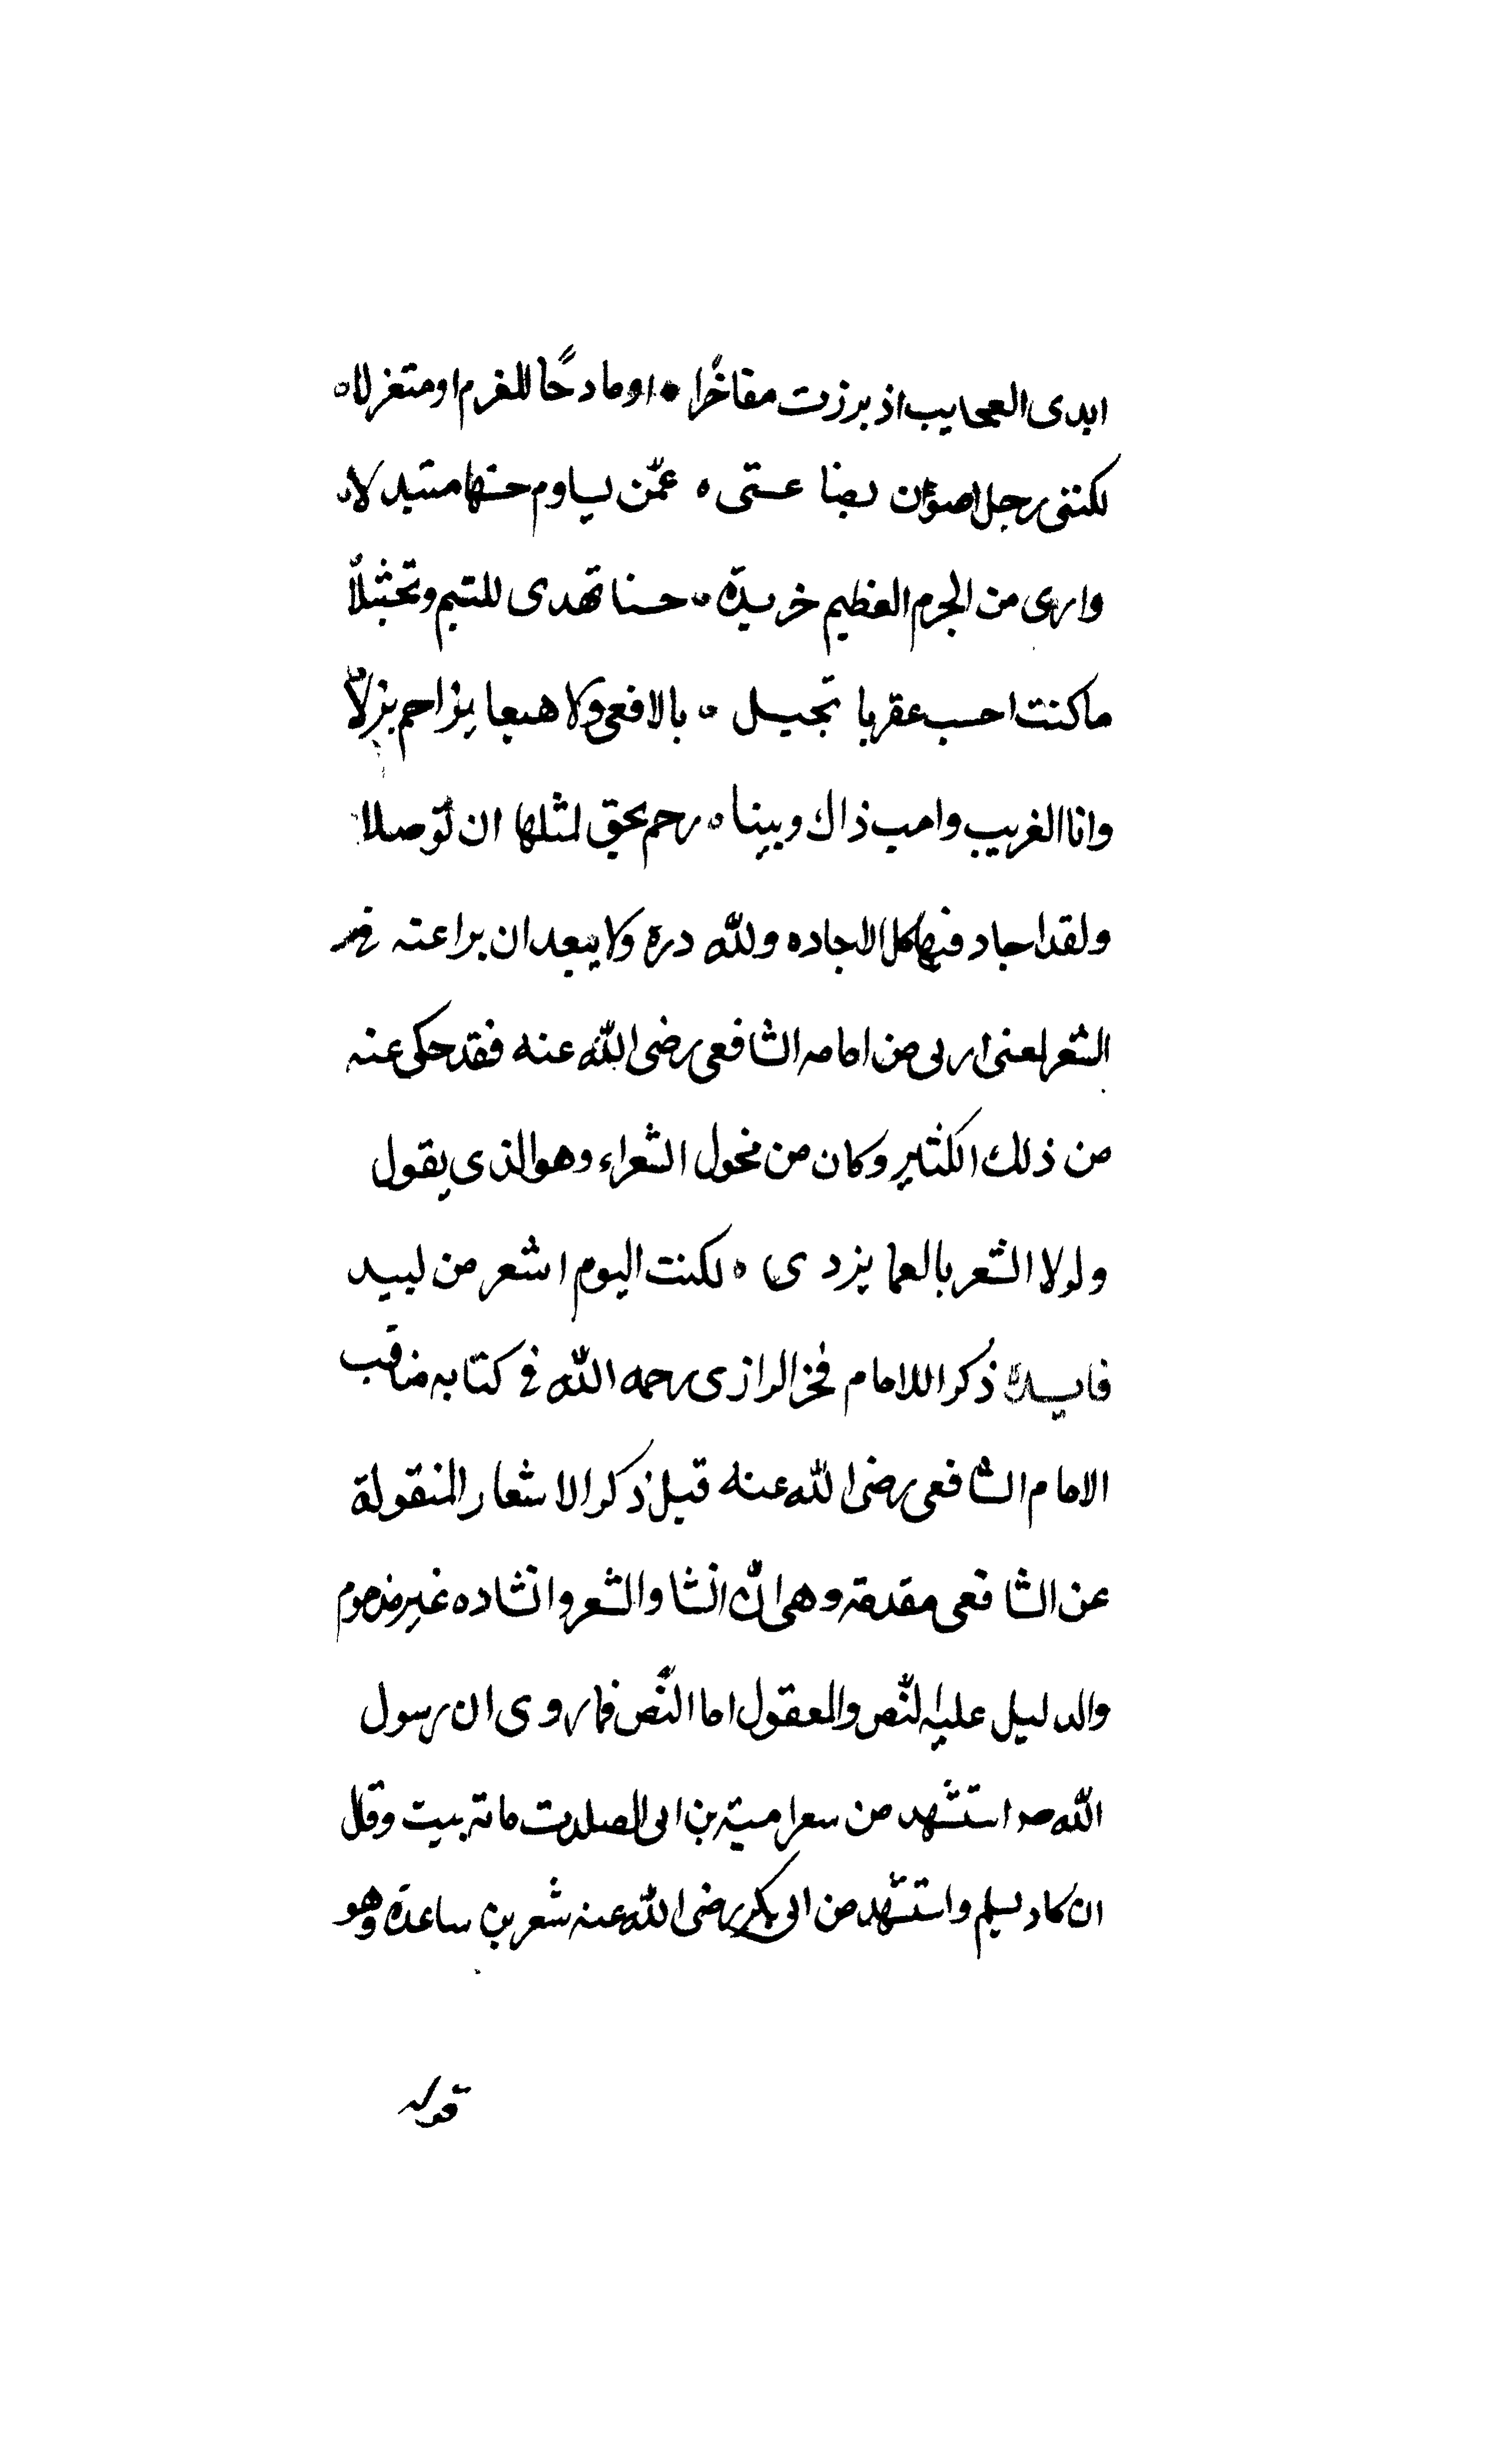 ابدى العجايب اذ برزت مفاخرًا ۰ او مادحًا للغرم او متغزلا ه
لكننى رجل اصون بضاعتى ه عمّن يساوم حسنها متبدلا
وارى من الجرم العظيم خريدة ه حسنا تهدى للتيم وتحثلا
ما كنت احسب عقربا تجيل ه بالافعى ولا هبعا يزاحم بزلا
وانا الغريب وامب ذاك وبيننا ه رحم بحق لمثلها ان توصلا
ولقد اجاد فيها كل الاجاده ولله دره ولا يبعد ان براعته فى
الشعر لعنى اربى من امامه الشافعى رضى الله عنه فقد حكى عنه
من ذلك الكثير وكان من فحول الشعراء وهو الذى يقول
ولولا الشعر بالعلما يزدى ه لكنت اليوم اشعر من لبيد
فايدة ذكر اللامام فخر الرازى رحمه الله فى كتابه مناقب
الامام الشافعى رضى الله عنه قبل ذكر الاشعار المنقولة
عن الشافعى مقدمة وهى ان انشاو الشعر وانشاده غير مذموم
والدليل عليه النّص والمعقول اما النّص فما روى ان رسول
الله صه استشهد من سعر امية بن ابى الصلدت ماته بيت وقال
ان كاد ليسلم واستشهد من ابى بكر رضى الله عنه شعر بن ساعدة وهو
قوله